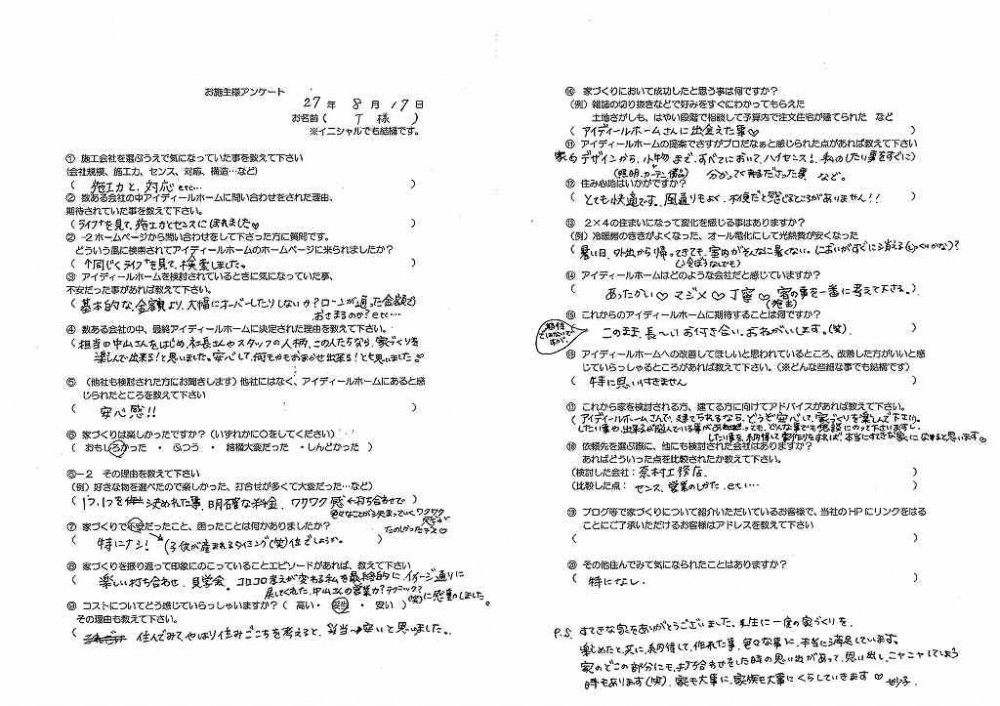 お施主様アンケート
27年 8月 17日
お名前( T 様 )
※イニシャルでも結構です。
① 施工会社を選ぶうえで気になっていた事を教えて下さい
(会社規模、施工力、センス、対応、構造…など)
( 施工力と、対応etc… )
② 数ある会社の中アイディールホームに問い合わせをされた理由、
期待されていた事を教えて下さい。
( ライブを見て、施工力とセンスにほれました♡ )
②-2 ホームページから問い合わせをして下さった方に質問です。
どういう風に検索されてアイディールホームのホームページに来られましたか?
( 同じくライブを見て、検索しました。 )
③ アイディールホームを検討されているときに気になっていた事、
不安だった事があれば教えて下さい。
( 基本的な、金額より、大幅にオーバーしたりしないか?ローンが通った金額で
おさまるのか?etc… )
④ 数ある会社の中、最終アイディールホームに決定された理由を教えて下さい。
( 担当の中山さんをはじめ、社長さんやスタッフの人柄、この人たちなら、家づくりを
楽しんで出来る!と思いました。安心して、何でもかもおまかせ出来る!とも思いました。 )
⑤ (他社も検討された方にお聞きします) 他社にはなく、アイディールホームにあると感
じられたところを教えて下さい
( 安心感!! )
⑥ 家づくりは楽しかったですか?(いずれかに○をしてください)
( おもしろかった ・ ふつう ・ 結構大変だった ・ しんどかった )
⑥-2 その理由を教えて下さい
(例) 好きな物を選べたので楽しかった、打合せが多くて大変だった…など)
( 1つ、1つを 決めれた事、明確な料金、ワクワク感←打ち合わせで )
色々なことが決まっていくワクワク感が
たのしかったデス♡
⑦ 家づくりで不安だったこと、困ったことは何かありましたか?
( 特にナシ! (子供が産まれるタイミング(笑)位でしょうか。 )
⑧ 家づくりを振り返って印象にのこっていることエピソードがあれば、教えて下さい
( 楽しい打ち合わせ、見学会。コロコロ考えが変わる私を最終的に、イメージ通りに
戻してくれた、中山さんの営業力?テクニック?(笑)に感動しました。 )
⑨ コストについてどう感じていらっしゃいますか? ( 高い ・ 妥当 ・ 安い )
その理由も教えて下さい。
( 住んでみてやはり住みごこちを考えると、妥当→安いと思いました。 )
⑩ 家づくりにおいて成功したと思う事は何ですか?
(例) 雑誌の切り抜きなどで好みをすぐにわかってもらえた
土地さがしも、はやい段階で相談して予算内で注文住宅が建てられた など
( アイディールホームさんに出会えた事♡ )
⑪ アイディールホームの提案でさすがプロだなぁと感じられた点があれば教えて下さい
( 家のデザインから、小物まで、すべてにおいて、ハイセンス!、私のしたい事をすぐに )
(照明、カーテン備品) 分かって下さった事 など。
⑫ 住み心地はいかがですか?
( とても快適です。風通りもよく、不便だと感じるところがありません!! )
⑬ 2×4の住まいになって変化を感じる事はありますか?
(例) 冷暖房のききがよくなった、オール電化にして光熱費が安くなった
( 暑い日、外出から帰ってきても、室内がそんなに暑くない。においがすぐに消える(しっくいかな)? )
⑭ アイディールホームはどのような会社だと感じていますか?
( あったかい♡ マジメ♡ 丁寧♡ 客の事を一番に考えて下さる。 )
⑮ これからのアイディールホームに期待することは何ですか?
( このまま、長〜いお付き合い、おねがいします。(笑) )
⑯ アイディールホームへの改善してほしいと思われているところ、改善した方がいいと感
じていらっしゃるところがあれば教えて下さい。(※どんな些細な事でも結構です)
( 特に思いつきません )
⑰ これから家を検討される方、建てる方に向けてアドバイスがあれば教えて下さい。
( アイディールホームさんで、建てられるなら、どうぞ安心して、家づくりを楽しんで下さい。
したい事や、出来るか悩んでいる事があっても、どんな事でも相談にのって下さいますし、
したい事を、納得して家作りをすれば、本当にすてきな家になると思います♡ )
⑱ 依頼先を選ぶ際に、他にも検討された会社はありますか?
あればどういった点を比較されたか教えて下さい。
(検討した会社: 木村工務店、 )
(比較した点: センス、営業のしかた、etc… )
⑲ ブログ等で家づくりについて紹介いただいているお客様で、当社のHPにリンクをはる
ことにご了承いただけるお客様はアドレスを教えて下さい
( )
⑳ その他住んでみて気になられたことはありますか?
( 特になし。 )
P.S. すてきな家をありがとうございました。人生に一度の家づくりを、
楽しめたと共に、納得して、作れた事、色々な事に、本当に満足しています。
家のどこの部分にも、打ち合わせをした時の思い出があって、思い出し、ニヤニヤしてしまう
時もあります(笑)。家も大事に、家族も大事にくらしていきます♡